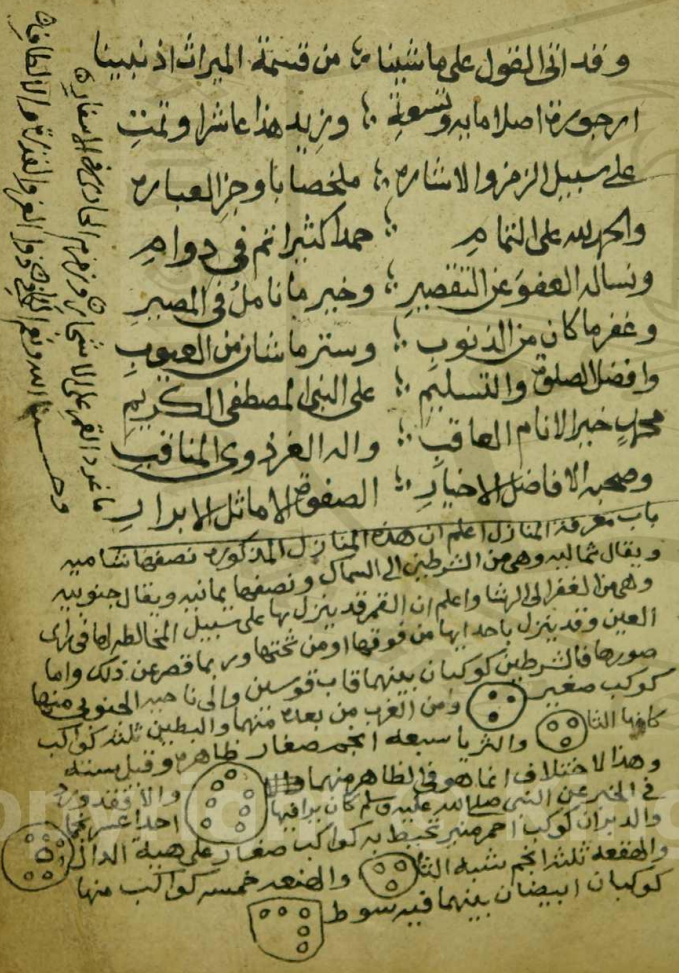 وقد اتى القول على ما شينا من قسمة الميراث اذ نبينا
ارجوزة اصلا مايه وتسعة ونزيد هذا عاشرا وتمت
على سبيل الرمز والاشاره ملخصا باوجز العباره
والحمد لله على التمام حمدا كثيرا تم في دوام
ونساله العفو عن التقصير وخير ما نامل في المصير
وغفر ما كان من الذنوب وستر ما شان من العيوب
وافضل الصلوة والتسليم على النبي المصطفى الكريم
محمد خير الانام العاقب واله الغر ذوى المناقب
وصحبه الافاضل الاخيار الصفوة الاماثل الابرار
باب معرفة المنازل اعلم ان هذه المنازل المذكوره نصفها شاميه
ويقال شماليه وهي من الشرطين الى السماك ونصفها يمانيه ويقال جنوبيه
وهي من الغفر الى الرشا واعلم ان القمر قد ينزل بها على سبيل المخالطه لها في راى
العين وقد ينزل باحدايها من فوقها او من تحتها وربما قصر عن ذلك واما
صورها فالشرطين كوكبان بينهما قاب قوسين والى ناحيه الجنوبي منها
كوكب صغير ومن الغرب من بعده منهما والبطين ثلثه كواكب
كانها الثا والثريا سبعه انجم صغار ظاهره وقيل سته
وهذا الاختلاف انما هو في الظاهر منها
في الخبر عن النبي صلى الله عليه وسلم كان يراقبها احدا عشر نجما
والدبران كوكب احمر منير تحيط به كواكب صغار على هيية الدال
والهقعه ثلثه انجم شبه الثا والهنعه خمسه كواكب منها
كوكبان ابيضان بينهما قيد سوط
ما غرد القمرى على الاشجار